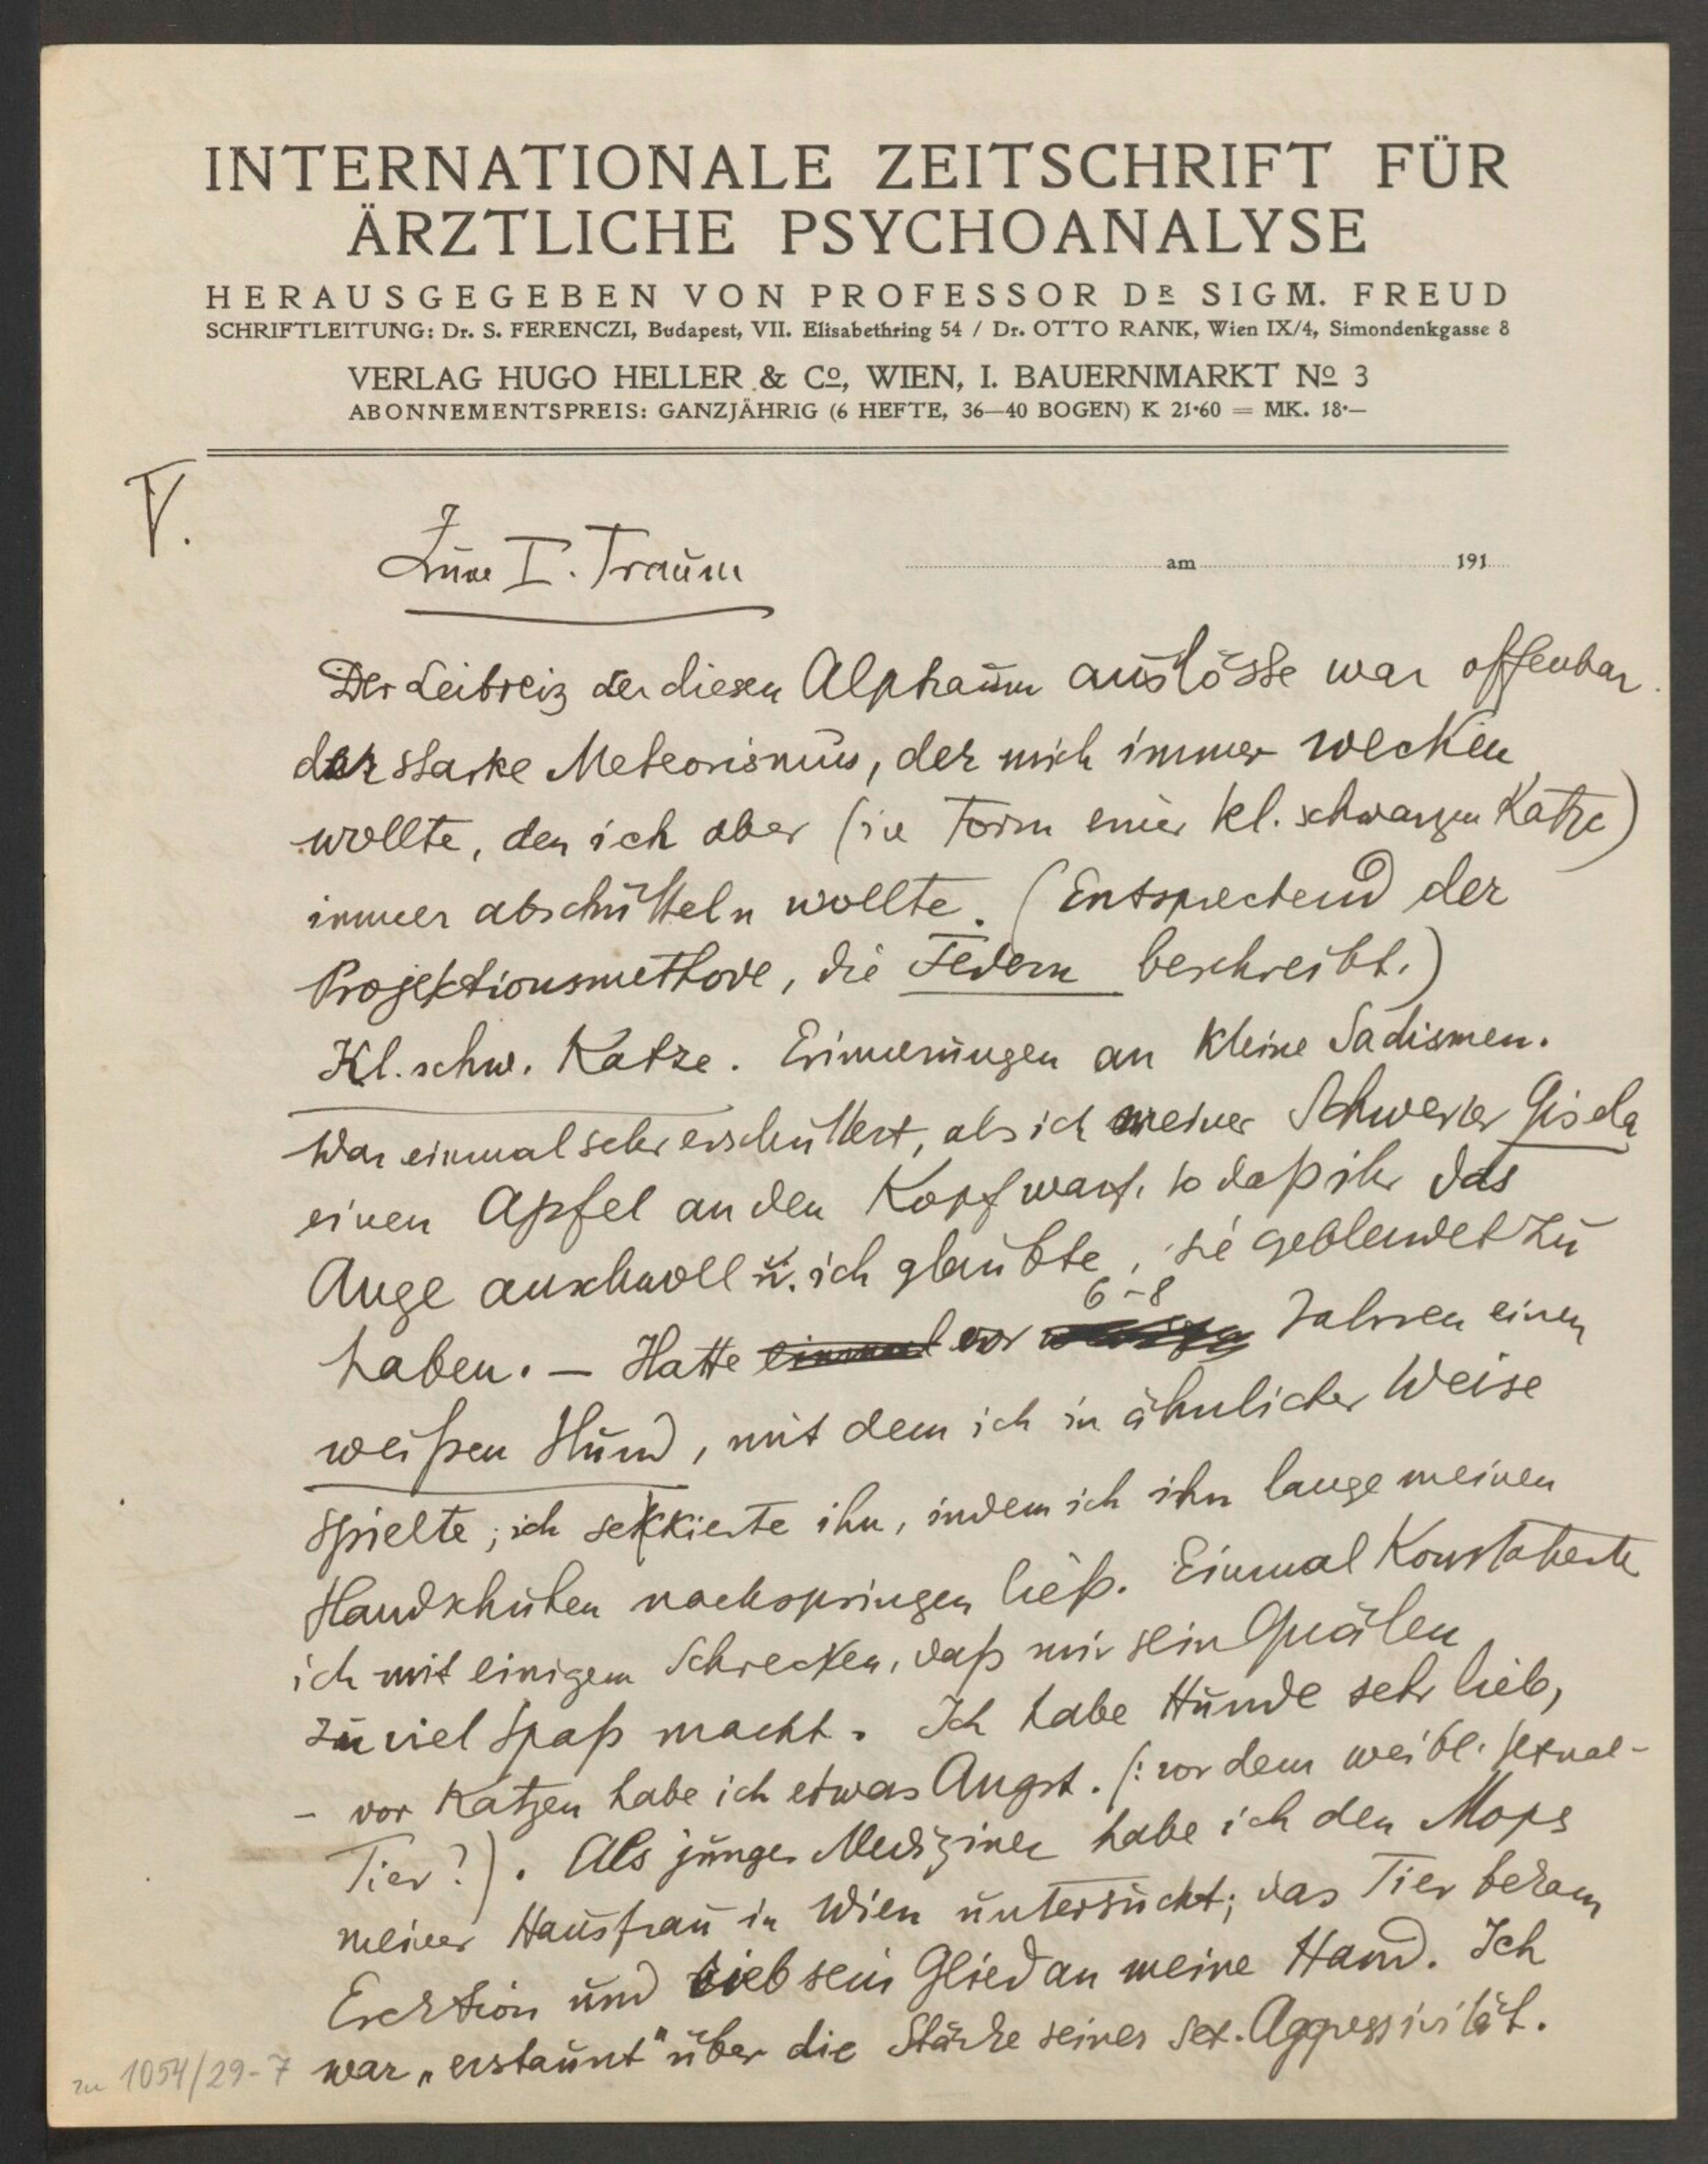 INTERNATIONALE ZEITSCHRIFT FÜR
ÄRZTLICHE PSYCHOANALYSE
HERAUSGEGEBEN VON PROFESSOR DR SIGM. FREUD
SCHRIFTLEITUNG: Dr. S. FERENCZI, Budapest, VII. Elisabethring 54 / Dr. OTTO RANK, Wien IX/4, Simondenkgasse 8
VERLAG HUGO HELLER & Co, WIEN, I. BAUERNMARKT No 3
ABONNEMENTSPREIS: GANZJÄHRIG (6 HEFTE, 36—40 BOGEN) K 21·60 = MK. 18·—
V.
Zum I. Traum
am 191
Der Leibreiz der diesen Alptraum auslösste war offenbar
der starke Meteorismus, der mich immer wecken
wollte, den ich aber (in Form einer kl. schwarzen Katze)
immer abschütteln wollte. (Entsprechend der
Projektionsmethode, die Federn beschreibt.)
Kl. schw. Katze. Erinnerungen an kleine Sadismen.
War einmal sehr erschüttert, als ich meiner Schwester Gisela
einen Apfel an den Kopf warf, so daß ihr das
Auge anschwoll u. ich glaubte, sie geblendet zu
haben. — Hatte einmal vor 6-8 Jahren einen
weißen Hund, mit dem ich in ähnlicher Weise
spielte; ich sekkierte ihn, indem ich ihn lange meinen
Handschuhen nachspringen ließ. Einmal konstatierte
ich mit einigem Schrecken, daß mir sein Quälen
zu viel Spaß macht. Ich habe Hunde sehr lieb,
- vor Katzen habe ich etwas Angst. (: vor dem weibl. Sexual-
Tier?). Als junger Mediziner habe ich den Mops
meiner Hausfrau in Wien untersucht; das Tier bekam
Erektion und rieb sein Glied an meine Hand. Ich
war „erstaunt" über die Stärke seiner sex. Aggressivität.
zu 1054/29-7